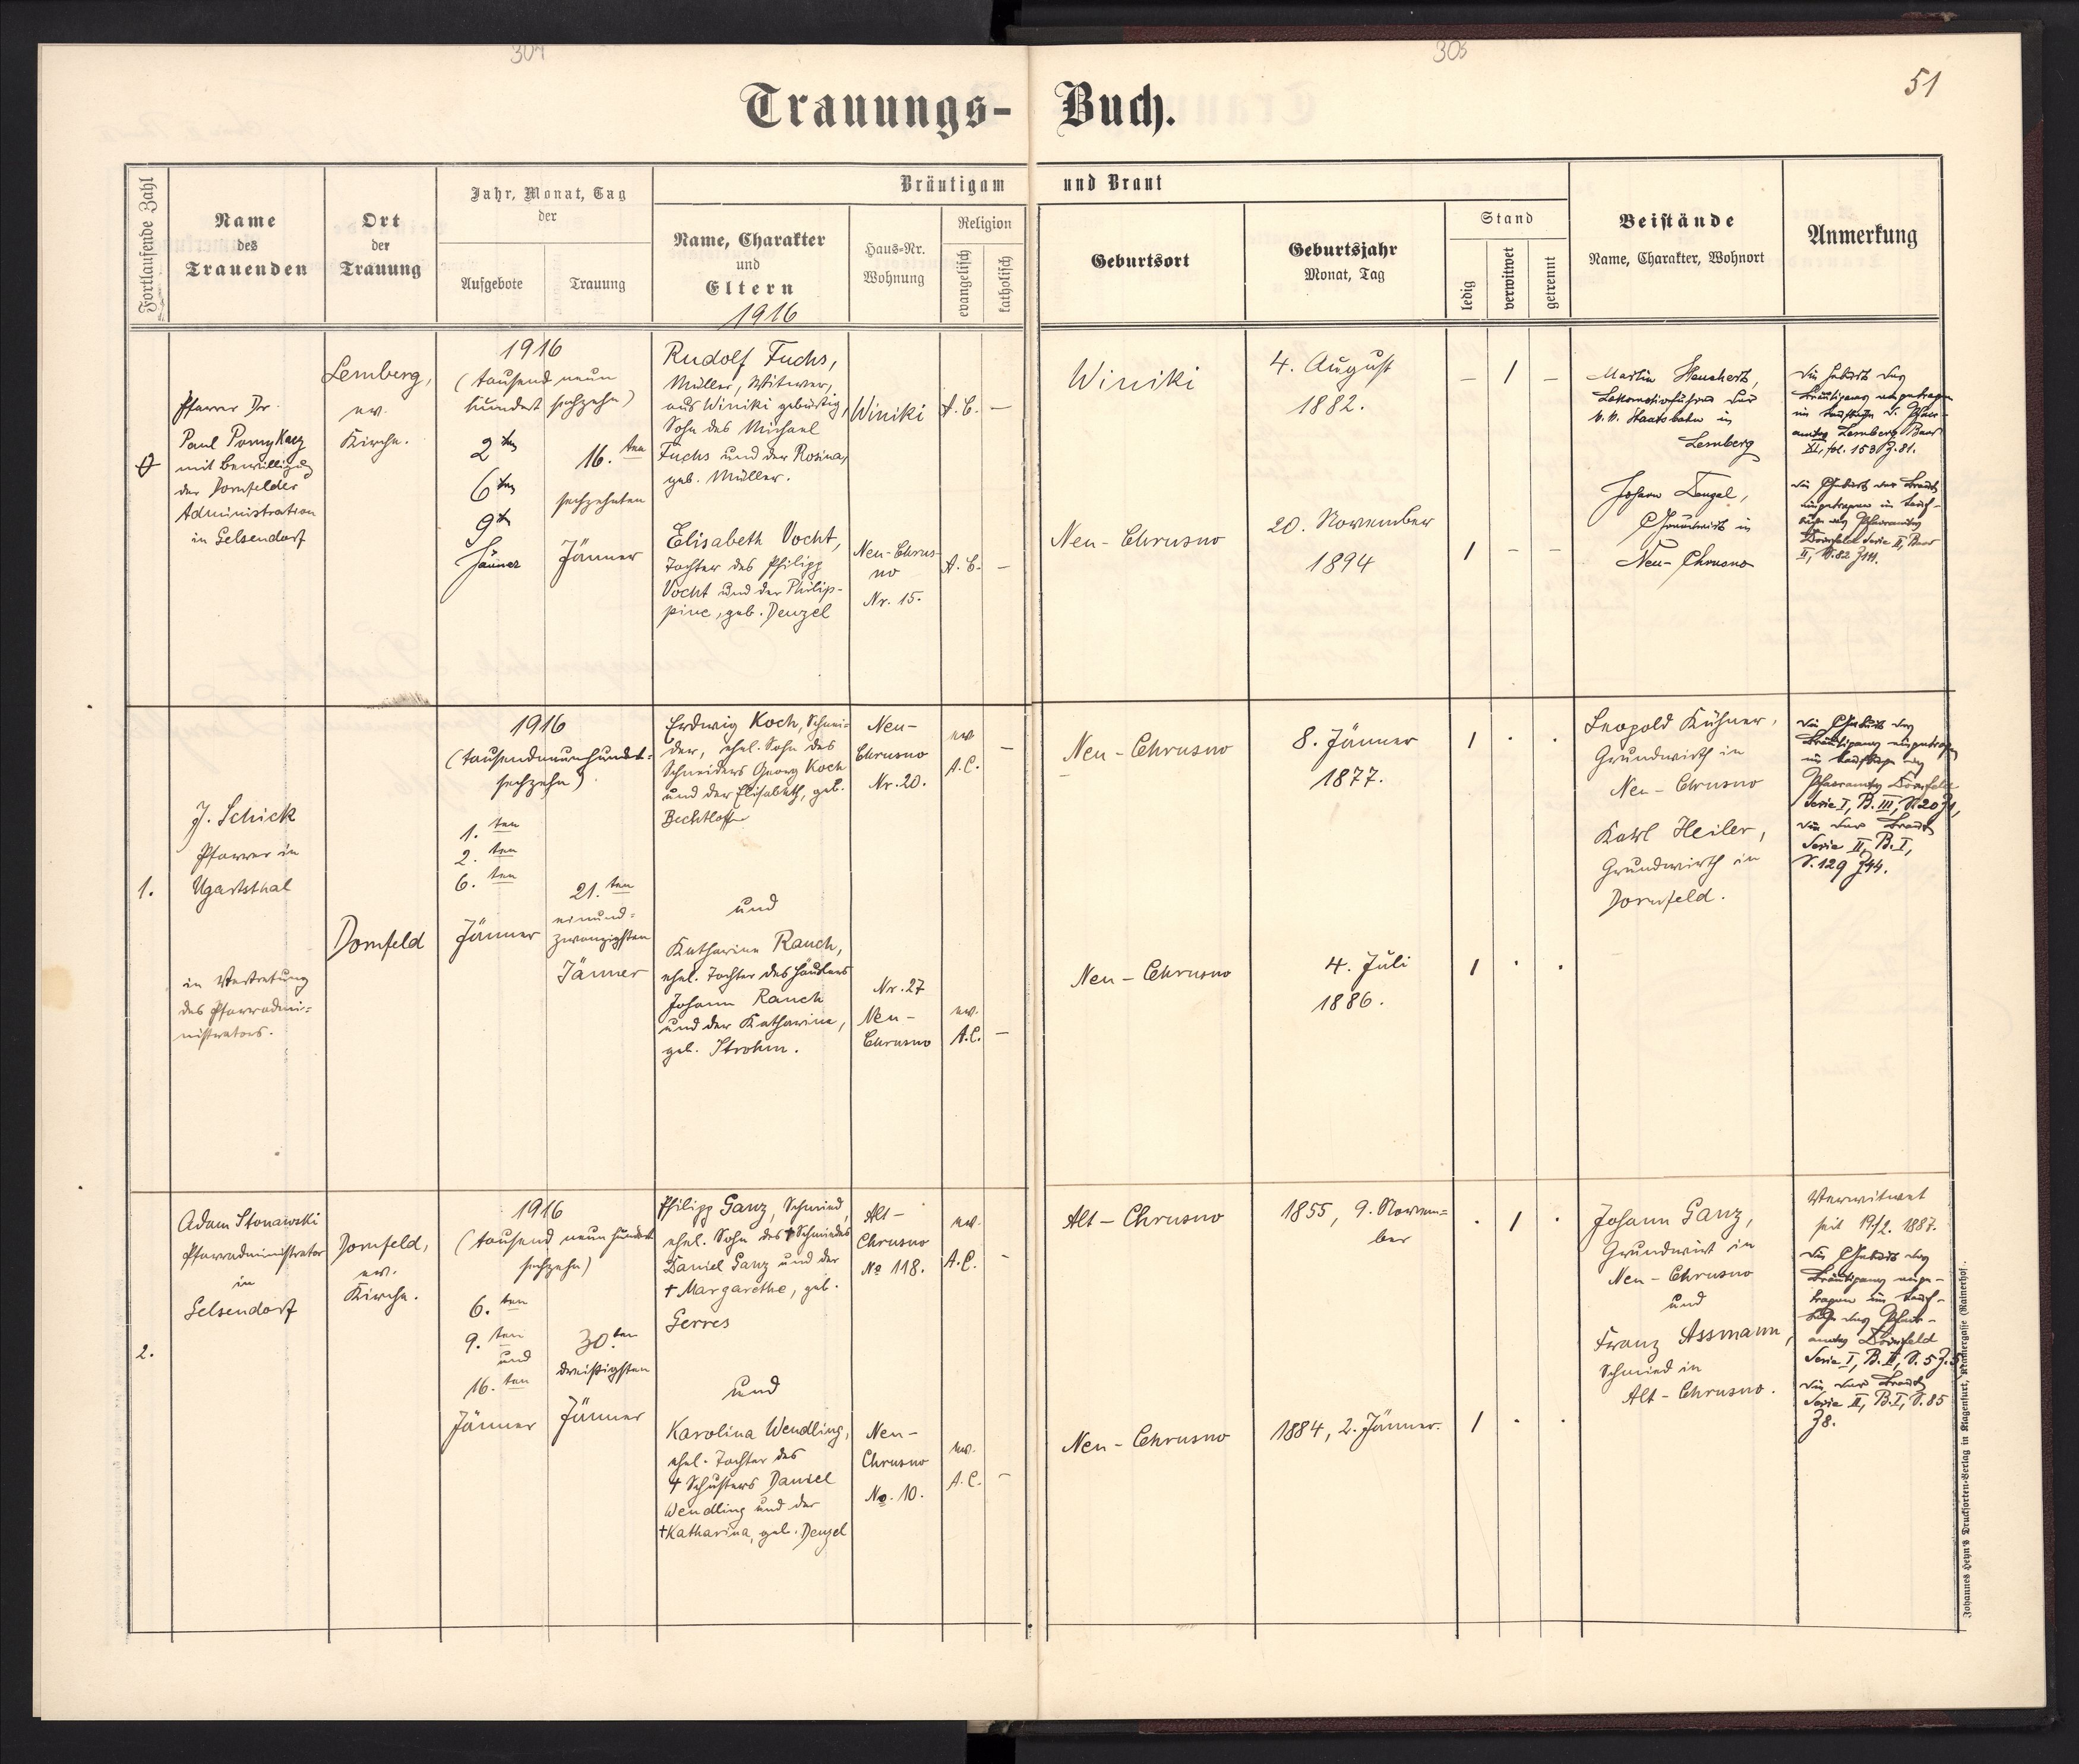 304
305
51
Trauungs- Buch.
Fortlaufende Zahl
Name
des
Trauenden
Ort
der
Trauung
Jahr, Monat, Tag
der
Aufgebote
Trauung
Bräutigam und Braut
Name, Charakter
und
Eltern
1916
Haus-Nr.
Wohnung
Religion
evangelisch
katholisch
Geburtsort
Geburtsjahr
Monat, Tag
Stand
ledig
verwitwet
getrennt
Beistände
Name, Charakter, Wohnort
Anmerkung
Pfarrer Dr.
Paul
mit Bewilligung
der Dornfelder
Administration
in Gelsendorf
Lemberg,
ev.
Kirche.
1916
(tausend neun
hundert sechzehn)
2ten
6ten
9ten
Jänner
16.ten
sechzehnten
Jänner
Rudolf Fuchs,
Müller, Witwer,
aus Winiki gebürtig,
Sohn des Michael
Fuchs und der Rosina,
geb. Müller.
Elisabeth Vocht,
Tochter des Philipp
Vocht und der Philip-
pine, geb. Denzel
Winiki
A.C. —
Neu-Chrus-
no
Nr. 15.
A.C. —
Winiki
4. August
1882.
— 1 —
Neu-Chrusno
20. November
1894
1 - -
Martin Heuchert,
Lokomotivführer der
k.k. Staatsbahn in
Lemberg
Johann Denzel,
Grundwirt in
Neu-Chrusno
Die Geburt des
Bräutigams eingetragen
im Taufbuche d. Pfarr-
amtes Lemberg
fol. 153 Z. 81.
Die Geburt der Braut
eingetragen im Tauf-
buche des Pfarramtes
Dornfeld Serie II,
II, S. 82
1.
J. Schick
Pfarrer in
Ugartsthal
in Vertretung
des Pfarradmi-
nistrators.
Dornfeld
1916
(tausendneunhundert-
sechzehn)
1.ten
2.ten
6.ten
Jänner
21.ten
einund-
zwanzigsten
Jänner
Erdwig Koch, Schnei-
der, ehel. Sohn des
Schneiders Georg Koch
und der Elisabeth, geb.
Bechtloff
und
Katharina Rauch,
ehel. Tochter des Häuslers
Johann Rauch
und der Katharina,
geb. Strohm.
Neu-
Chrusno
Nr. 20.
ev.
A.C. —
Nr. 27
Neu-
Chrusno
ev.
A.C. —
Neu-Chrusno
8. Jänner
1877.
1 . .
Neu-Chrusno
4. Juli
1886.
1 . .
Leopold Kühner,
Grundwirth in
Neu-Chrusno
Karl Heiler,
Grundwirth in
Dornfeld.
Die Geburt des
Bräutigams eingetragen
im Taufbuche des
Pfarramtes Dornfeld
Serie I, B. III, S. 20
die der Braut
Serie II, B. I,
S. 129 Z 44.
2.
Adam Stonawski
Pfarradministrator
in
Gelsendorf
Dornfeld,
ev.
Kirche.
1916
(tausend neun hundert
sechzehn)
6.ten
9.ten
und
16.ten
Jänner
30.ten
dreißigsten
Jänner
Philipp Ganz, Schmied,
ehel. Sohn des † Schmiedes
Daniel Ganz und der
† Margarethe, geb.
Gerres
und
Karolina Wendling,
ehel. Tochter des
† Schusters Daniel
Wendling und der
† Katharina, geb. Denzel
Alt-
Chrusno
No 118.
ev.
A.C. -
Neu-
Chrusno
No. 10.
ev.
A.C. -
Alt-Chrusno
1855, 9. Novem-
ber
. 1 .
Neu-Chrusno
1884, 2. Jänner.
1 . .
Johann Ganz,
Grundwirt in
Neu-Chrusno
und
Franz Assmann,
Schmied in
Alt-Chrusno.
Verwitwet
seit 19/2. 1887.
Die Geburt des
Bräutigams einge-
tragen im Tauf-
buche des Pfarr-
amtes Dornfeld
Serie I, B. II, S. 5 Z. 5
die der Braut
Serie II, B. I, S. 85
Z 8.
Johannes Heyn's Drucksorten-Verlag in Klagenfurt, Kramergasse (Rainerhof).